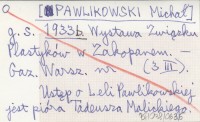 [PAWLIKOWSKI Michał]
g. S. 1933b Wystawa Związku
Plastyków w Zakopanem. —
Gaz. Warsz. nr (3 III).
Ustęp o Leli Pawlikowskiej
jest pióra Tadeusza Malickiego.